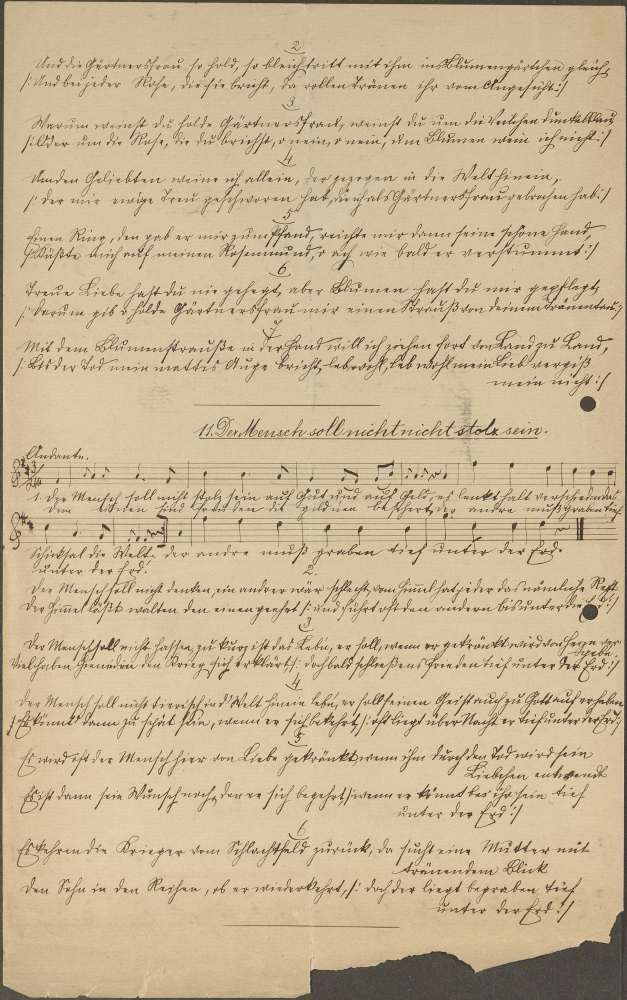 2
Und die Gärtnersfrau, so hold, so bleich tritt mit ihm ins Blumengärtchen gleich,
/: Und bei jeder Rose, die sie bricht, da rollen Tränen ihr vom Angesicht :/
3
Warum weinst du holde Gärtnersfrau, weinst du um die Veilchen dunkelblau
/: Oder um die Rose, die du brichst, o nein, o nein, um Blumen wein ich nicht :/
4
Um den Geliebten weine ich allein, der gezogen in die Welt hinein,
/: der mir ewige Treu geschworen hat, die ich als Gärtnersfrau gebrochen hab :/
5
Einen Ring, den gab er mir zum Pfand, reichte mir dann seine schöne Hand,
/: Küßte mich auf meinen Rosenmund, o ach wie bald er verstummt :/
6
Treue Liebe hast du nie gehegt, aber Blumen hast du mir gepflegt,
/: Darum gib o holde Gärtnersfrau mir einen Strauß von deinem Tränentau :/
7
Mit dem Blumenstrauße in der Hand will ich ziehen fort von Land zu Land,
/: Bis der Tod mein mattes Auge bricht, leb wohl, leb wohl mein Lieb vergiß
mein nicht :/
11. Der Mensch soll nicht nicht stolz sein.
Andante.
1. Der Mensch soll nicht stolz sein auf Gut und auf Geld, es lenkt halt verschieden das
Dem einen sind die gildnen beschert, der andre muß graben tief
Schicksal die Welt. der andre muß graben tief unter der Erd.
unter der Erd.
2.
Der Mensch soll nicht denken, ein andrer wär schlecht, vom Himmel hat jeder das nämliche Recht
Der Himmel läßt walten den einen geehrt /: und führt oft den andern bis unter die Erd :/
3
Der Mensch soll nicht hassen, zu kurz ist das Lebn, er soll, wenn er gekränkt wird von Herzen
vergebn.
Viel haben den Krieg sich erklärt /: doch bald schloß uns Frieden tief unter der Erd :/
4
Der Mensch soll nicht in d' Welt hinein lebn, er soll seinen Geist auch zu Gott auf erheben
Es könnt dann zu spät sein, wenn er sich bekehrt, /: oft liegt über Nacht er tief unter der Erd :/
5
Es wird oft der Mensch hier von Liebe gekränkt, wenn ihm durch den Tod wird sein
Liebchen entwendt
Es ist dann sein Wunsch noch, den er sich begehrt /: wenn er könnt bei ihr sein tief
unter der Erd :/
6
Es kehren die Krieger vom Schlachtfeld zurück, da sucht eine Mutter mit
tränendem Blick
Den Sohn in den Reihen, ob er wiederkehrt, /: doch der liegt begraben tief
unter der Erd :/